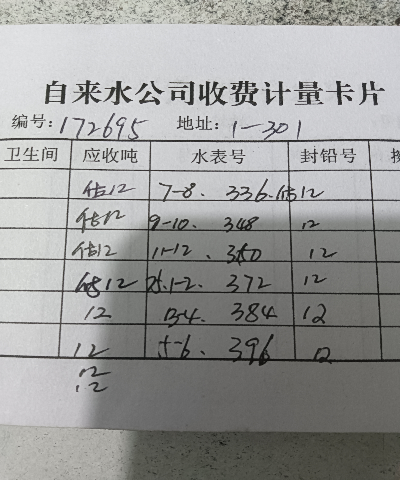 自来水公司收费计量卡片
编号: 172695 地址: 1-301
卫生间 应收吨 水表号 封铅号
估12 7-8. 336. 估12
估12 9-10. 348 12
估12 11-12. 360 12
估12 1-2. 372 12
12 3-4. 384 12
12 5-6. 396 12
12
12